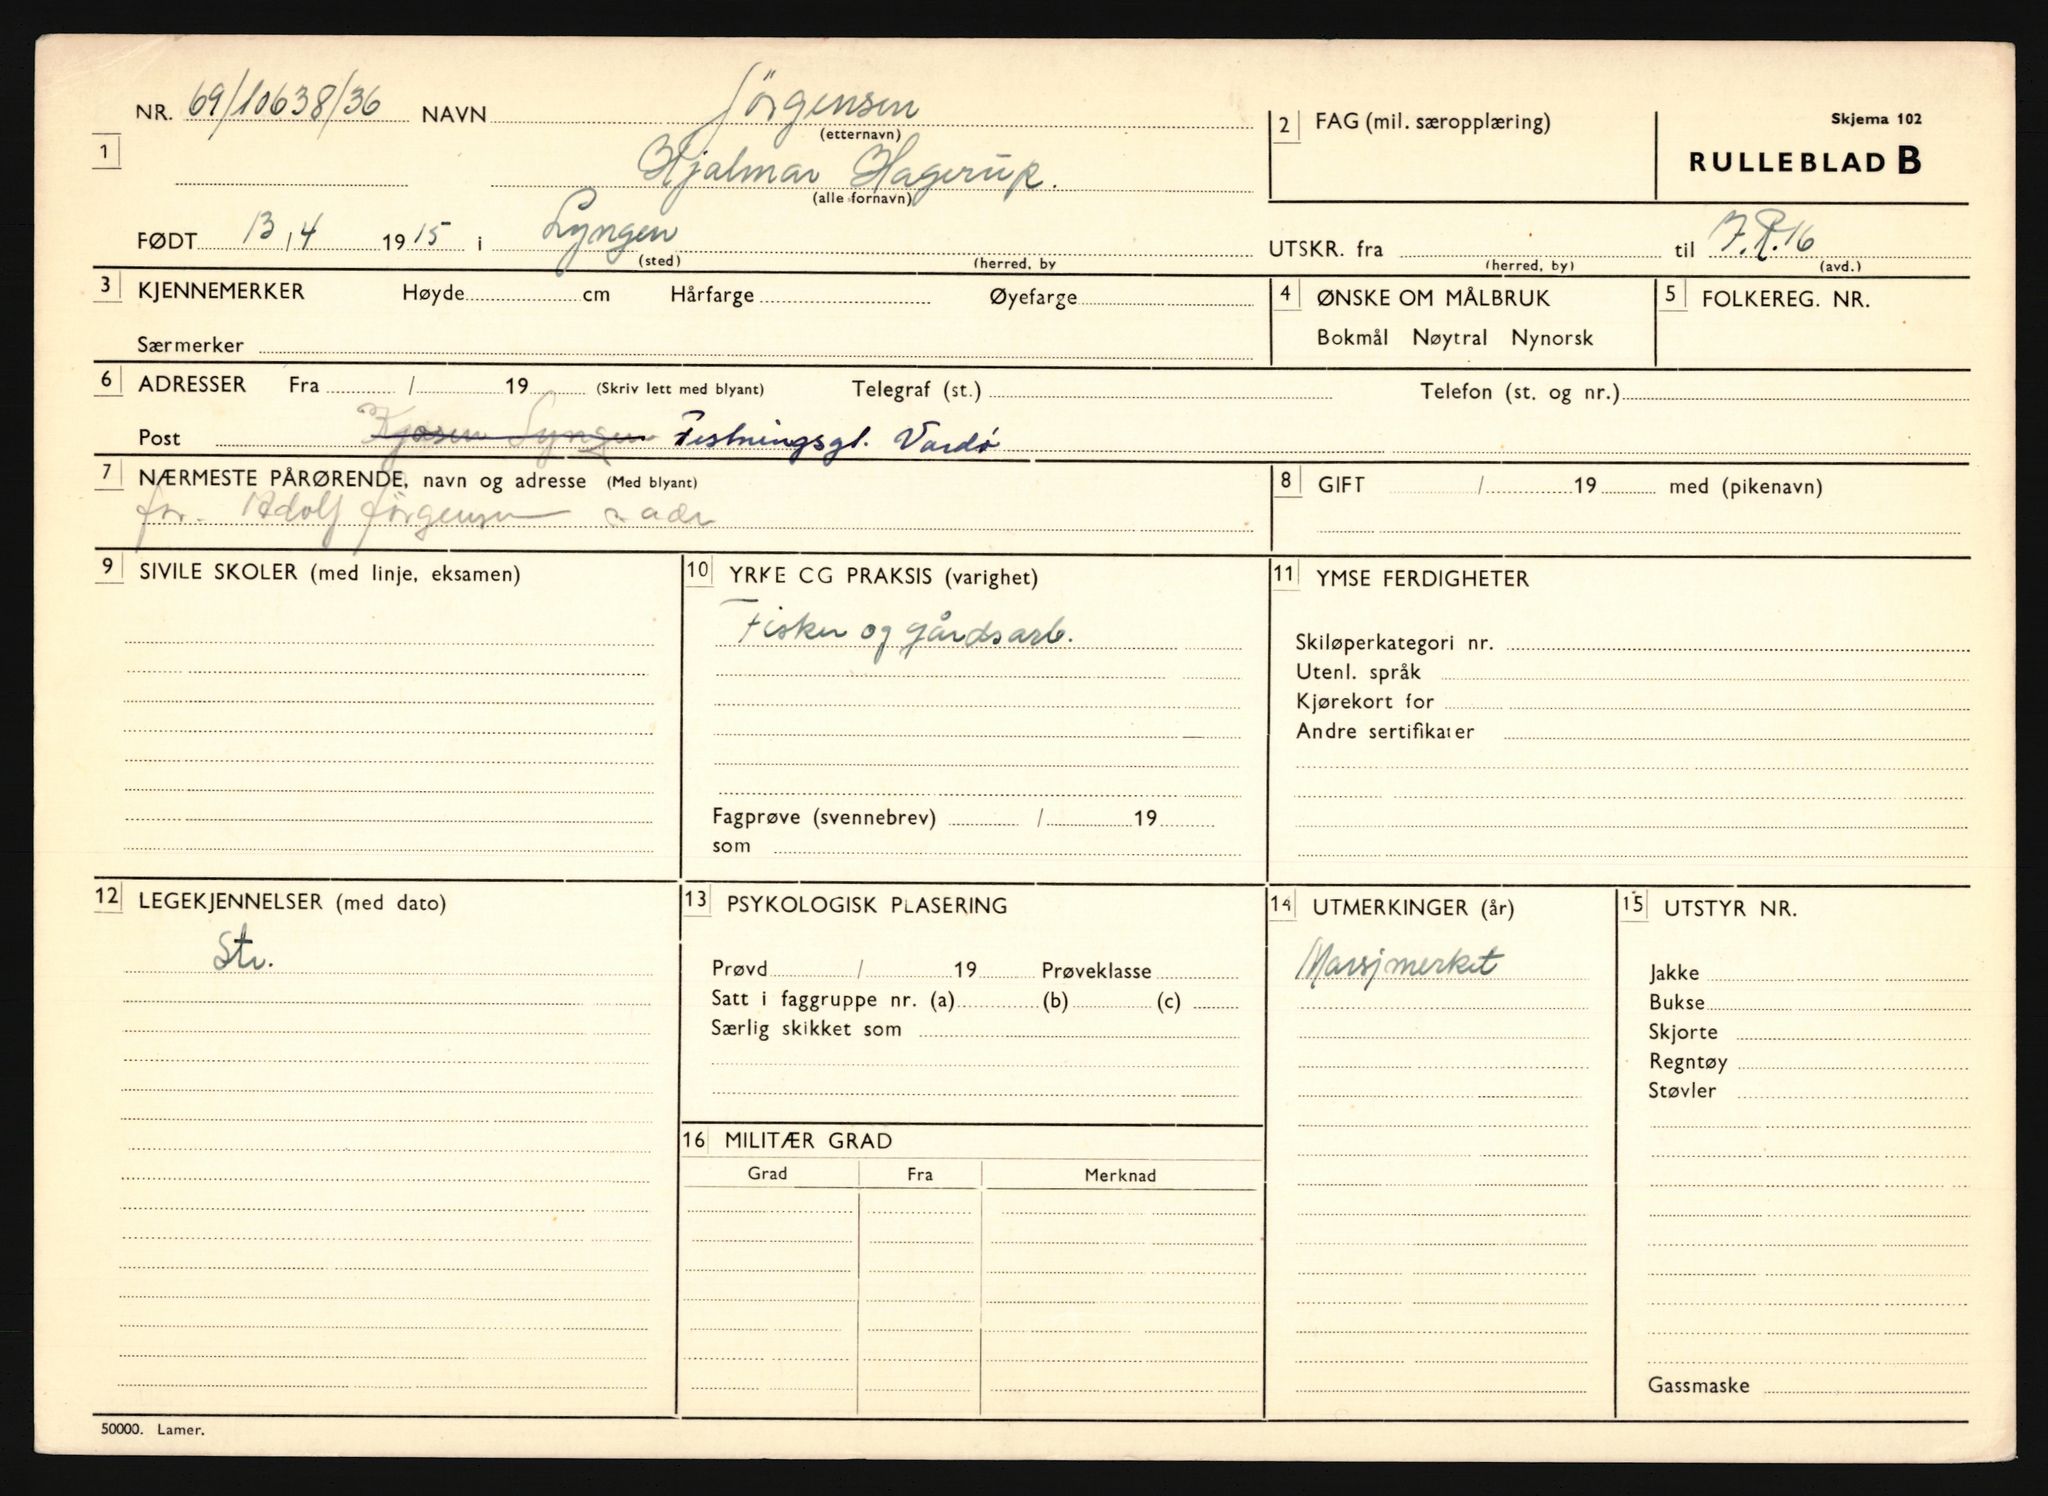 NR. 69/10638/36 NAVN Jörgensen
(etternavn)
1
Hjalmar Hagerup.
(alle fornavn)
2 FAG (mil. særopplæring)
Skjema 102
RULLEBLAD B
FØDT 13/4 1915 i Lyngen
(sted) (herred, by
UTSKR. fra til I.R.16
(herred, by) (avd.)
3 KJENNEMERKER Høyde cm Hårfarge Øyefarge
Særmerker
4 ØNSKE OM MÅLBRUK
Bokmål Nøytral Nynorsk
5 FOLKEREG. NR.
6 ADRESSER Fra / 19 (Skriv lett med blyant) Telegraf (st.) Telefon (st. og nr.)
Post Kjosen Lyngen Festningsgt. Vardø
7 NÆRMESTE PÅRØRENDE, navn og adresse (Med blyant)
far. Adolf Jørgensen s adr
8 GIFT / 19 med (pikenavn)
9 SIVILE SKOLER (med linje, eksamen)
10 YRKE CG PRAKSIS (varighet)
Fisker og gårdsarb.
Fagprøve (svennebrev) / 19
som
11 YMSE FERDIGHETER
Skiløperkategori nr.
Utenl. språk
Kjørekort for
Andre sertifikater
12 LEGEKJENNELSER (med dato)
Str.
13 PSYKOLOGISK PLASERING
Prøvd / 19 Prøveklasse
Satt i faggruppe nr. (a) (b) (c)
Særlig skikket som
14 UTMERKINGER (år)
Marsjmerket
15 UTSTYR NR.
Jakke
Bukse
Skjorte
Regntøy
Støvler
Gassmaske
16 MILITÆR GRAD
Grad Fra Merknad
50000. Lamer.